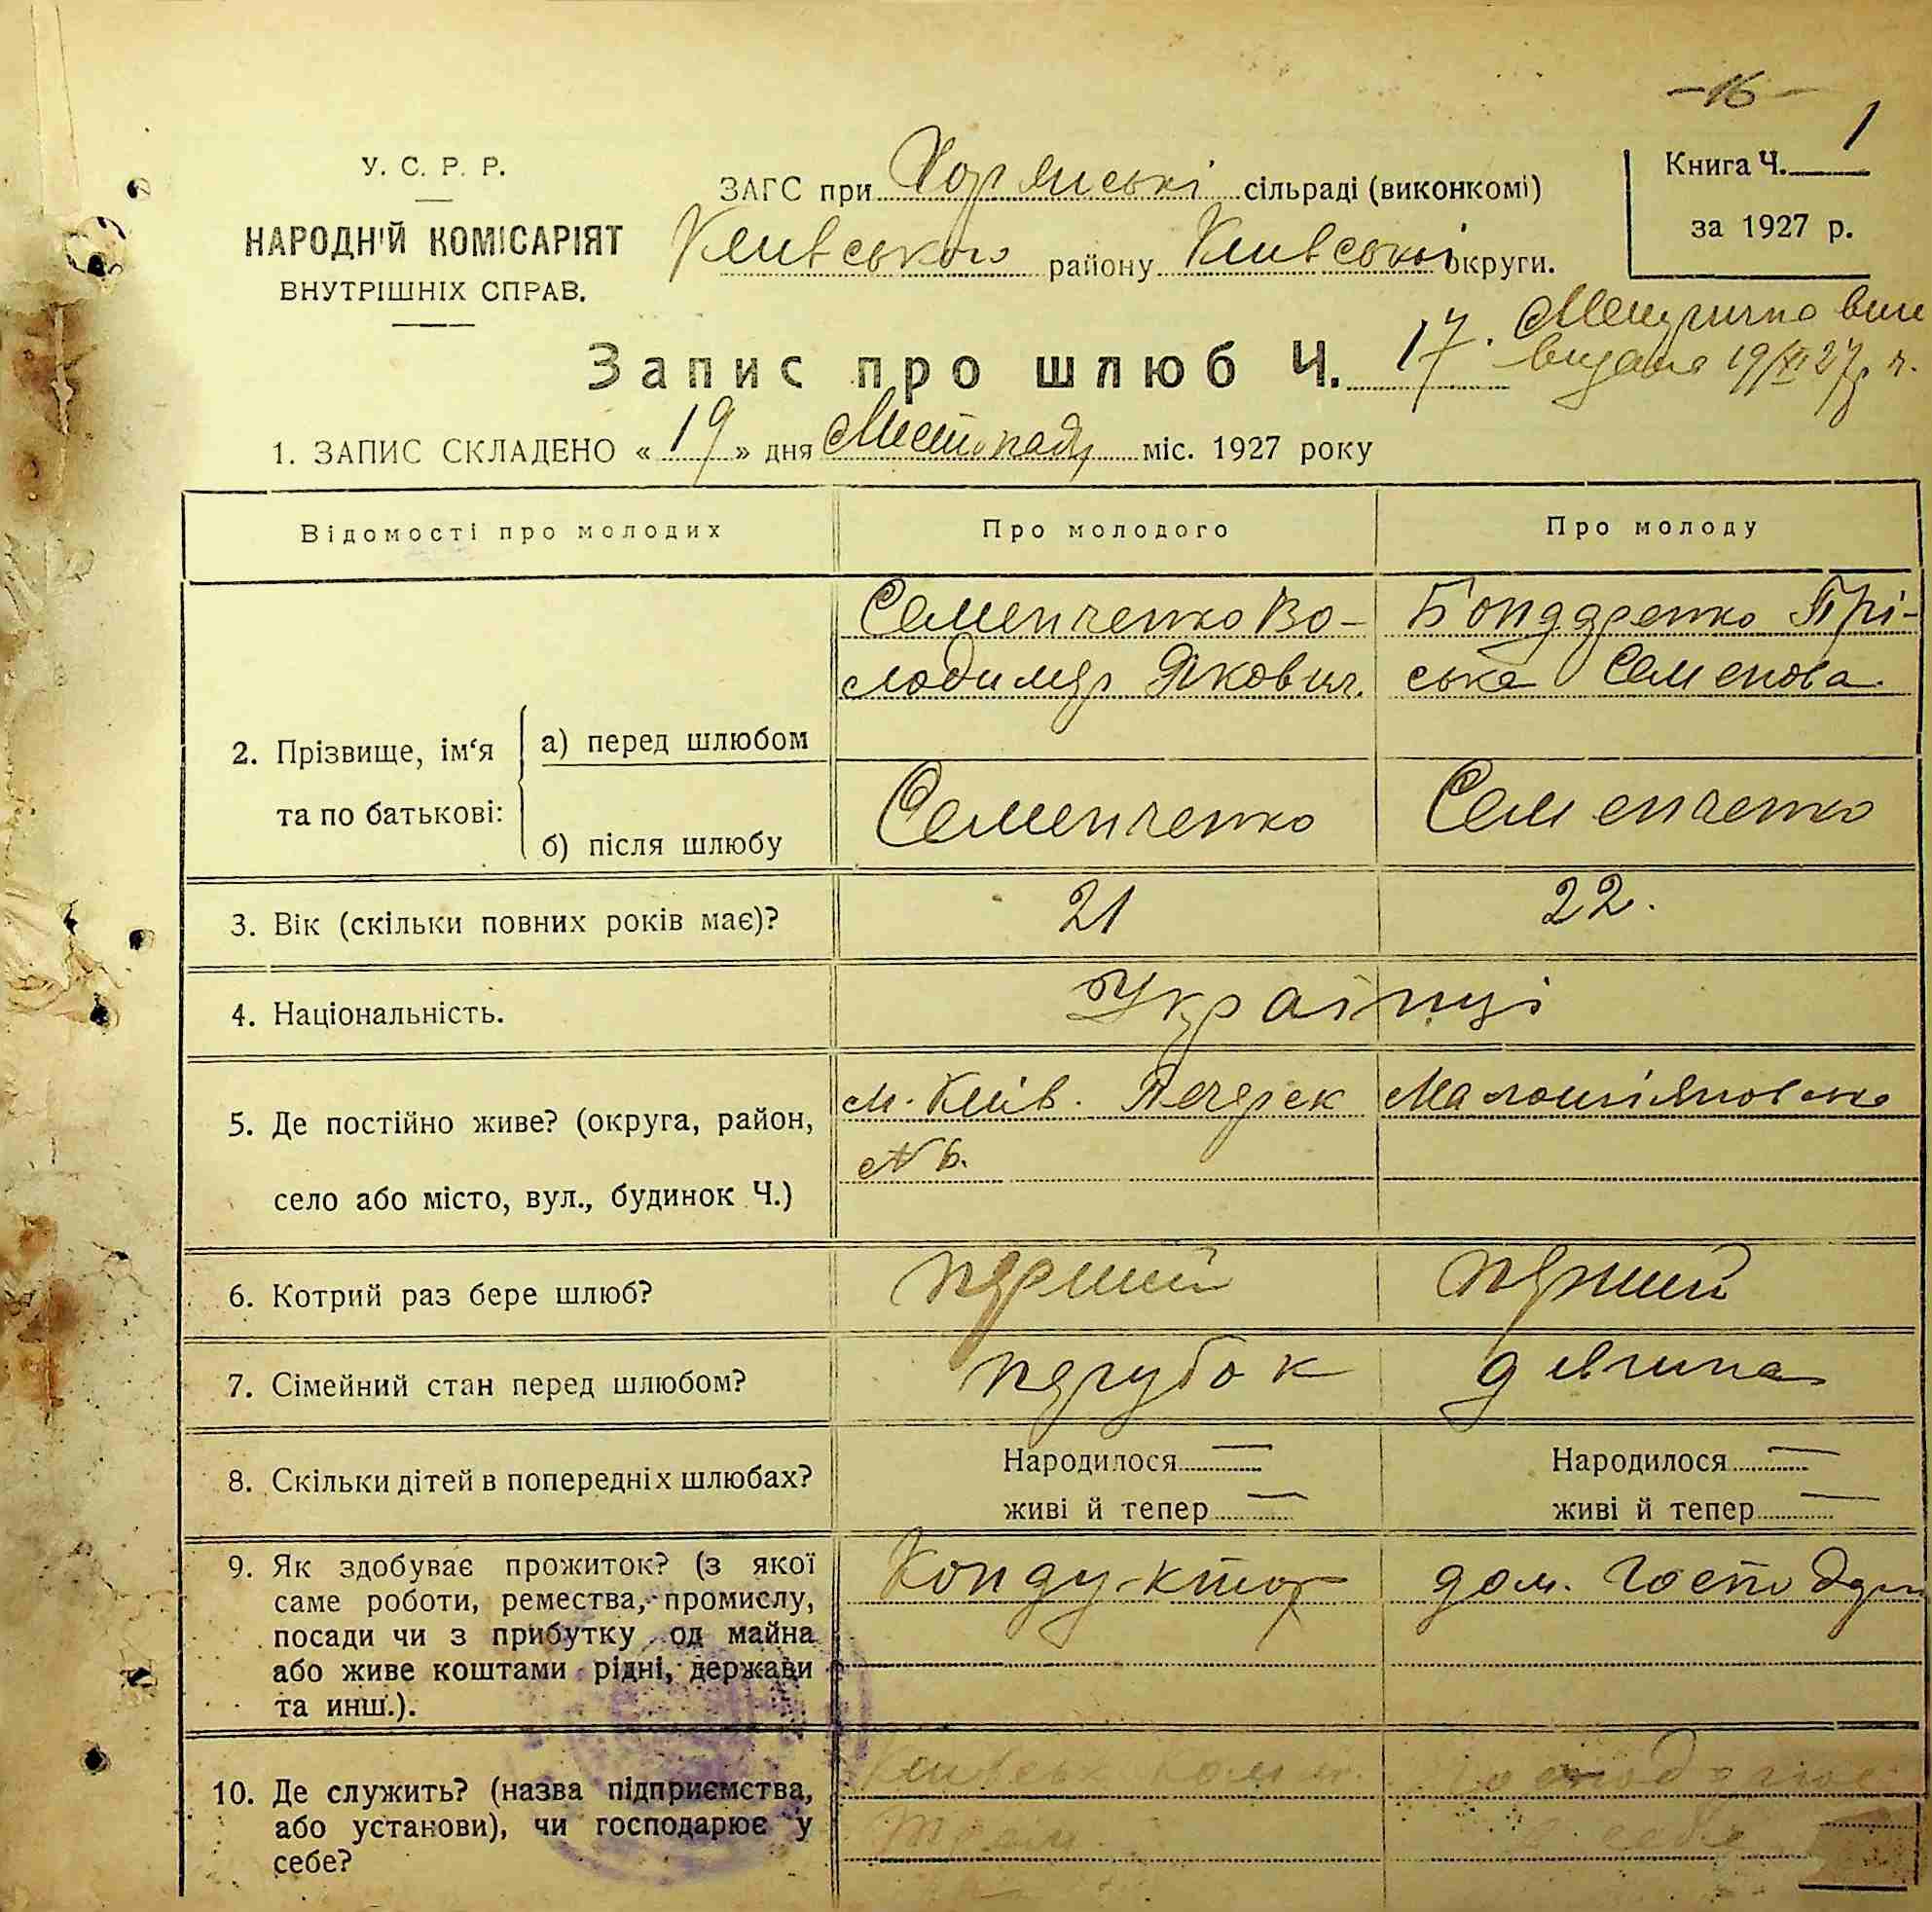 -16-
У. С. Р. Р.
НАРОДНІЙ КОМІСАРІЯТ
ВНУТРІШНІХ СПРАВ.
ЗАГС при сільраді (виконкомі)
Київського району Київської округи.
Книга Ч. 1
за 1927 р.
Запис про шлюб Ч. 17.
видана 19/XI 27 р.
1. ЗАПИС СКЛАДЕНО « 19 » дня Листопаду міс. 1927 року
Відомості про молодих Про молодого Про молоду
2. Прізвище, ім‘я та по батькові:
а) перед шлюбом
Семенченко Во-
лодимер Якович.
Бондаренко Прі-
ська Семенова.
б) після шлюбу Семенченко Семенченко
3. Вік (скільки повних років має)? 21 22.
4. Національність. Українці
5. Де постійно живе? (округа, район,
село або місто, вул., будинок Ч.)
м. Київ. Печерск
№ 6.
6. Котрий раз бере шлюб? перший перший
7. Сімейний стан перед шлюбом? парубок дівчина
8. Скільки дітей в попередніх шлюбах? Народилося — Народилося —
живі й тепер — живі й тепер —
9. Як здобуває прожиток? (з якої
саме роботи, ремества, промислу,
посади чи з прибутку од майна
або живе коштами рідні, держави
та инш.).
Кондуктор дом. господар
10. Де служить? (назва підприємства,
або установи), чи господарює у
себе?